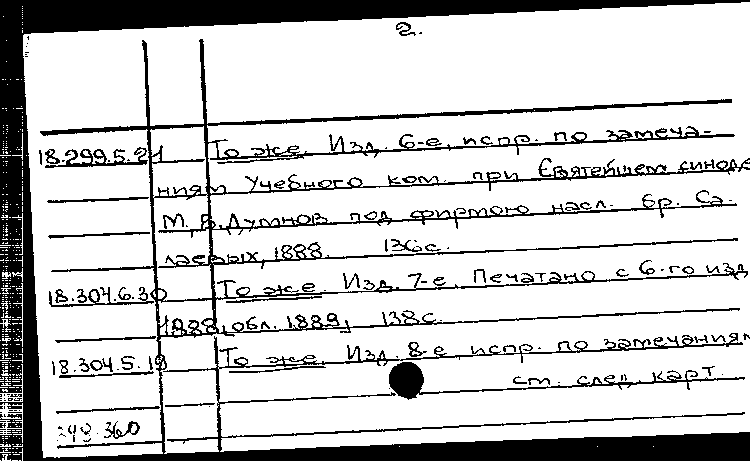 2.
18.299.5.21 То же. Изд. 6-е, испр. по замеча-
ниям Учебного ком. при Святейшем синоде
М., В. Думнов под фирмою насл. бр. Са-
лаевых, 1888. 136 с.
18.304.6.30 То же. Изд. 7-е. Печатано с 6-го изд.
1888, обл. 1889, 138 с.
18.304.5.18 То же. Изд. 8-е, испр. по замечаниям
см. след. карт.
348 360